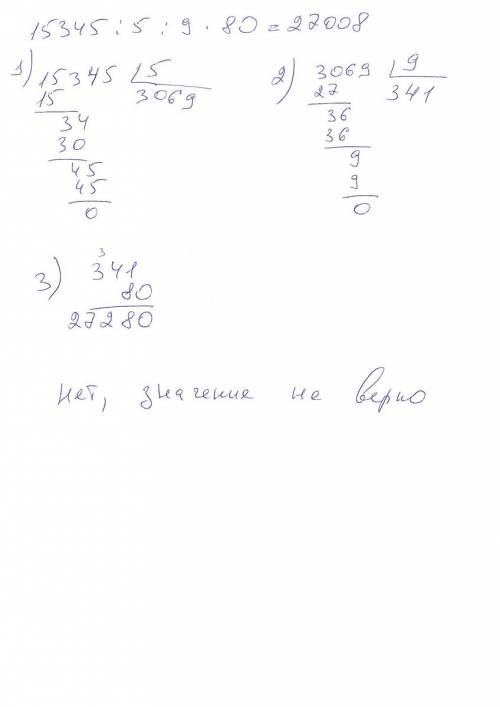 15345 : 5 : 9 · 80 = 27008
1) 15345 5
15 3069
34
30
45
45
0
2) 3069 9
27 341
36
36
9
9
0
3) 3
341
80
27280
нет, значение не верно